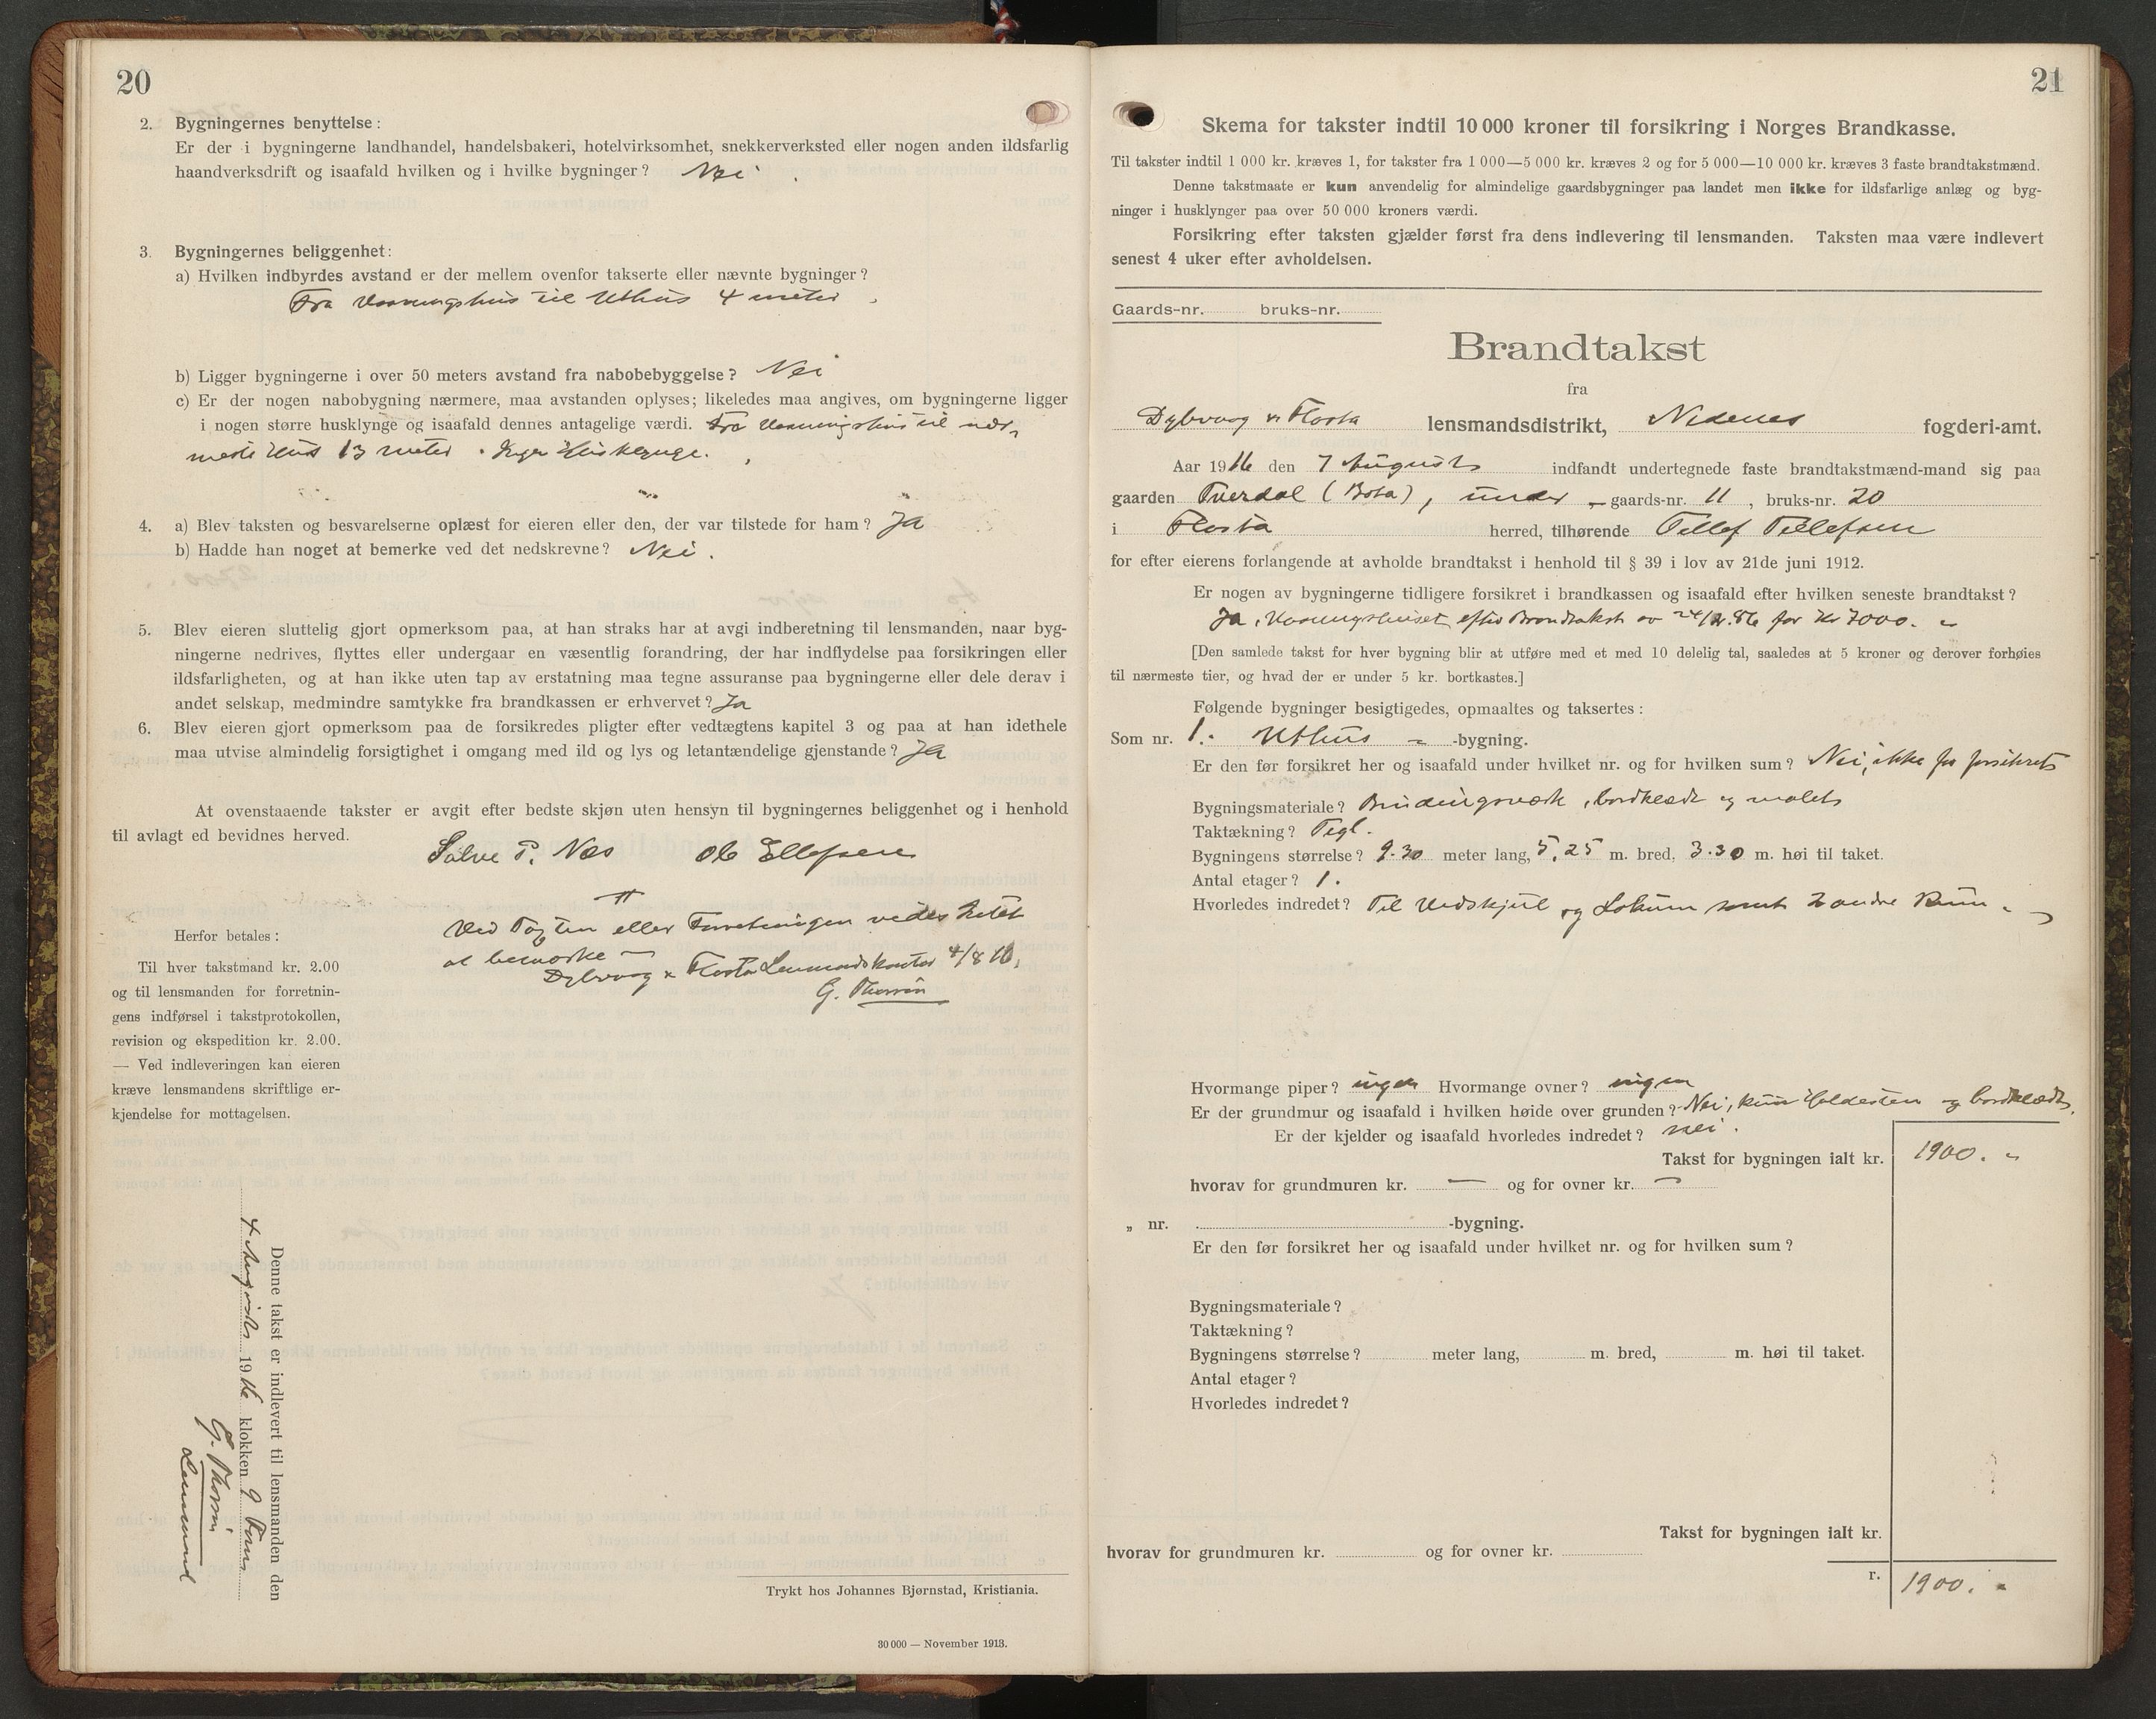 20
2. Bygningernes benyttelse:
Er der i bygningerne landhandel, handelsbakeri, hotelvirksomhet, snekkerverksted eller nogen anden ildsfarlig
haandverksdrift og isaafald hvilken og i hvilke bygninger? Nei
3. Bygningernes beliggenhet:
a) Hvilken indbyrdes avstand er der mellem ovenfor takserte eller nævnte bygninger?
Fra Vaaningshus til Uthus 4 meter
b) Ligger bygningerne i over 50 meters avstand fra nabobebyggelse? Nei
c) Er der nogen nabobygning nærmere, maa avstanden oplyses; likeledes maa angives, om bygningerne ligger
i nogen større husklynge og isaafald dennes antagelige værdi. Fra Vaaningshus til nær-
meste Hus 13 meter. Ingen
4. a) Blev taksten og besvarelserne oplæst for eieren eller den, der var tilstede for ham? Ja
b) Hadde han noget at bemerke ved det nedskrevne? Nei.
5. Blev eieren sluttelig gjort opmerksom paa, at han straks har at avgi indberetning til lensmanden, naar byg-
ningerne nedrives, flyttes eller undergaar en væsentlig forandring, der har indflydelse paa forsikringen eller
ildsfarligheten, og at han ikke uten tap av erstatning maa tegne assuranse paa bygningerne eller dele derav i
andet selskap, medmindre samtykke fra brandkassen er erhvervet? Ja
6. Blev eieren gjort opmerksom paa de forsikredes pligter efter vedtægtens kapitel 3 og paa at han idethele
maa utvise almindelig forsigtighet i omgang med ild og lys og letantændelige gjenstande? Ja
At ovenstaaende takster er avgit efter bedste skjøn uten hensyn til bygningernes beliggenhet og i henhold
til avlagt ed bevidnes herved.
Salve T. Næs Ole Ellefsen
Ved Taxten eller Forretningen vides Intet
at bemærke
Dybvaag & Flosta Lensmandskontor 4/8 16,
G. Thorsen
Herfor betales:
Til hver takstmand kr. 2.00
og til lensmanden for forretnin-
gens indførsel i takstprotokollen,
revision og ekspedition kr. 2.00.
— Ved indleveringen kan eieren
kræve lensmandens skriftlige er-
kjendelse for mottagelsen.
Denne takst er indlevert til lensmanden den
4 August 1916 klokken 9 Form
G. Thorsen
Lensmand
Trykt hos Johannes Bjørnstad, Kristiania.
30 000 — November 1913.
21
Skema for takster indtil 10 000 kroner til forsikring i Norges Brandkasse.
Til takster indtil 1 000 kr. kræves 1, for takster fra 1 000—5 000 kr. kræves 2 og for 5 000—10 000 kr. kræves 3 faste brandtakstmænd.
Denne takstmaate er kun anvendelig for almindelige gaardsbygninger paa landet men ikke for ildsfarlige anlæg og byg-
ninger i husklynger paa over 50 000 kroners værdi.
Forsikring efter taksten gjælder først fra dens indlevering til lensmanden. Taksten maa være indlevert
senest 4 uker efter avholdelsen.
Gaards-nr. bruks-nr.
Brandtakst
fra
Dybvaag & Flosta lensmandsdistrikt, Nedenes fogderi-amt.
Aar 1916 den 7 August indfandt undertegnede faste brandtakstmænd-mand sig paa
gaarden Tverdal (Bota), under gaards-nr. 11, bruks-nr. 20
i Flosta herred, tilhørende Tellef Tellefsen
for efter eierens forlangende at avholde brandtakst i henhold til § 39 i lov av 21de juni 1912.
Er nogen av bygningerne tidligere forsikret i brandkassen og isaafald efter hvilken seneste brandtakst?
Ja, Vaaningshuset efter Brandtakst av for Kr 7000.
[Den samlede takst for hver bygning blir at utføre med et med 10 delelig tal, saaledes at 5 kroner og derover forhøies
til nærmeste tier, og hvad der er under 5 kr. bortkastes.]
Følgende bygninger besigtigedes, opmaaltes og taksertes:
Som nr. 1. Uthus -bygning.
Er den før forsikret her og isaafald under hvilket nr. og for hvilken sum? Nei, ikke før forsikret
Bygningsmateriale? Bindingsværk, bordklædt og malet
Taktækning? Tegl.
Bygningens størrelse? 9.30 meter lang, 5,25 m. bred, 3.30 m. høi til taket.
Antal etager? 1.
Hvorledes indredet? Til Vedskjul og Lokum samt 2 andre Rum
Hvormange piper? ingen Hvormange ovner? ingen
Er der grundmur og isaafald i hvilken høide over grunden? Nei, kun Holdesten og bordklædt
Er der kjelder og isaafald hvorledes indredet? nei.
Takst for bygningen ialt kr. 1900. "
hvorav for grundmuren kr. — og for ovner kr. —
„ nr. -bygning.
Er den før forsikret her og isaafald under hvilket nr. og for hvilken sum?
Bygningsmateriale?
Taktækning?
Bygningens størrelse? meter lang, m. bred, m. høi til taket.
Antal etager?
Hvorledes indredet?
Takst for bygningen ialt kr.
hvorav for grundmuren kr. og for ovner kr.
r. 1900. "